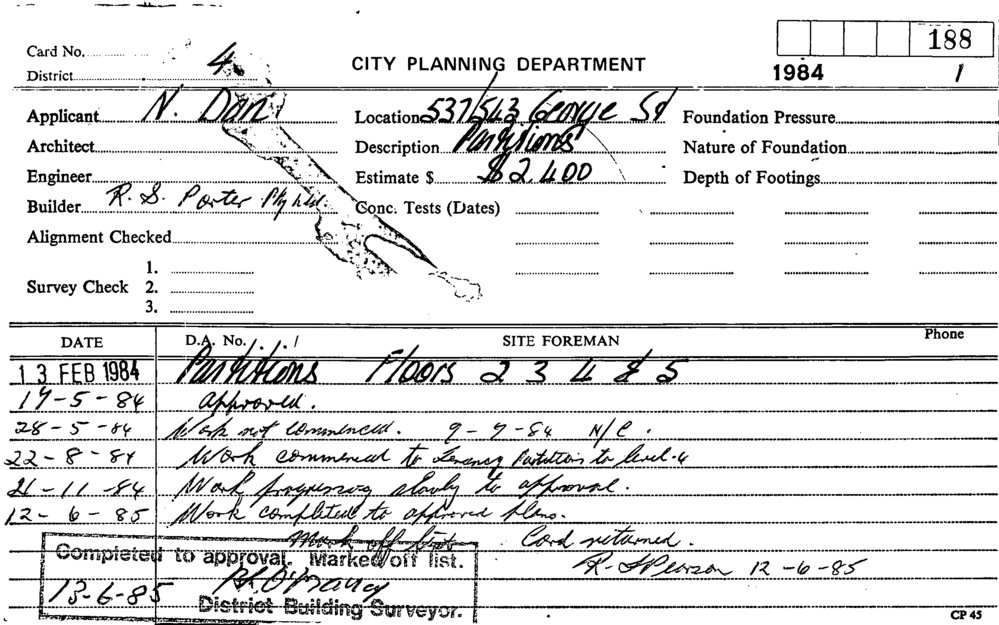 188
Card No. 4
CITY PLANNING DEPARTMENT
1984 1
District
Applicant N. Dan Location 537/543 George St Foundation Pressure
Architect Description Partitions Nature of Foundation
Engineer Estimate $ $2,400 Depth of Footings
Builder R. S. Porter Pty Ltd. Conc. Tests (Dates)
Alignment Checked
1.
Survey Check 2.
3.
DATE D.A. No. / . / . / SITE FOREMAN Phone
13 FEB 1984 Partitions Floors 2 3 4 & 5
17-5-84 Approved.
28-5-84 Work not commenced. 9-7-84 N/C.
22-8-84 Work commenced to Tenancy Partition to level-4
21-11-84 Work progressing slowly to approval.
12-6-85 Work completed to approved plans.
Mark off list Card returned.
Completed to approval. Marked off list.
R. Pearson 12-6-85
13-6-85
District Building Surveyor.
CP 45